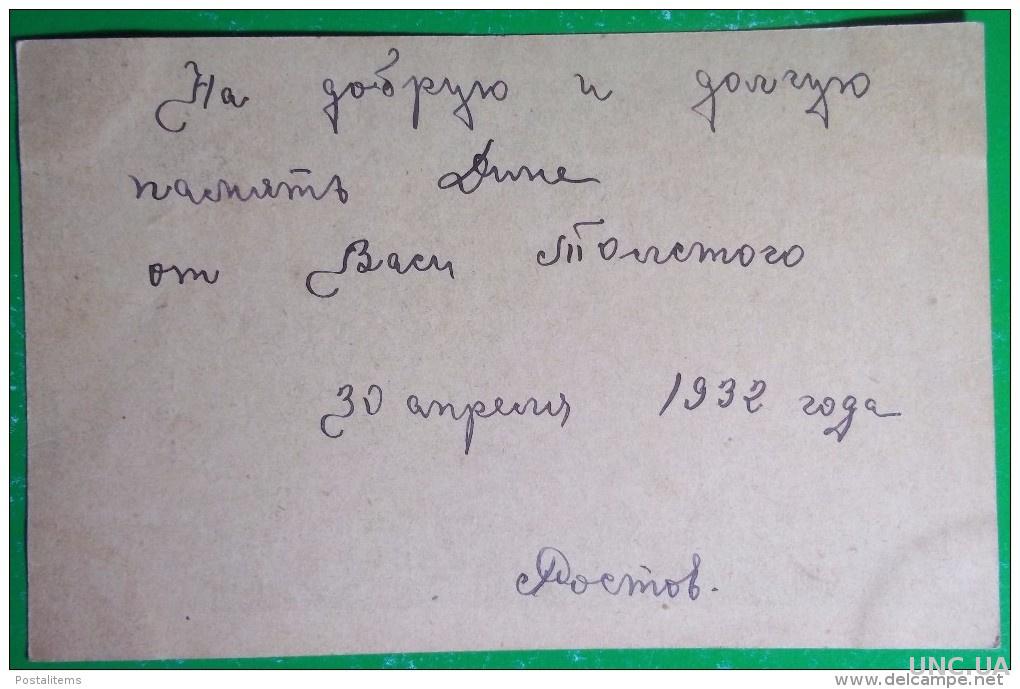 На добрую и долгую
память Дине
от Васи Толстого
30 апреля 1932 года
Ростов.
UNC.UA
Postalitems
www.delcampe.net